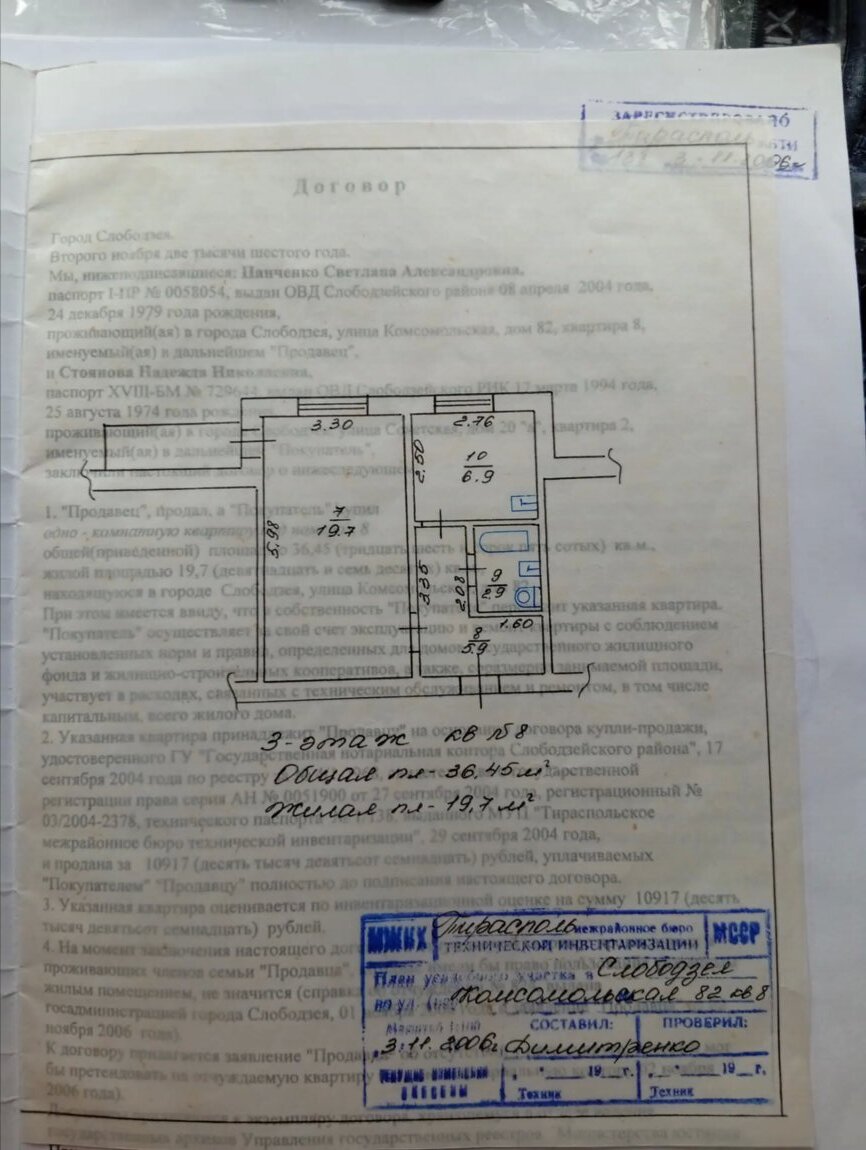 ЗАРЕГИСТРИРОВАНО
Тирасполь
3.11.2006г
Договор
Город Слободзея.
Второго ноября две тысячи шестого года.
Мы, нижеподписавшиеся: Панченко Светлана Александровна,
паспорт I-ПР № 0058054, выдан ОВД Слободзейского района 08 апреля 2004 года,
24 декабря 1979 года рождения,
проживающий(ая) в города Слободзея, улица Комсомольская, дом 82, квартира 8,
именуемый(ая) в дальнейшем "Продавец",
и Стоянова Надежда Николаевна,
паспорт XVIII-БМ № выдан ОВД Слободзейского РИК 17 марта 1994 года,
25 августа 1974 года рождения
проживающий(ая) в городе Слободзея улица Советская, дом 20 "а", квартира 2,
именуемый(ая) в дальнейшем "Покупатель",
заключили настоящий договор о нижеследующем
3.30
2.76
2.50
10
6.9
7
19.7
5.98
3.35
2.08
9
2.9
1.60
8
5.9
1. "Продавец", продал, а "Покупатель" купил
одно - комнатную квартиру 8
общей(приведенной) площадью 36,45 (тридцать шесть сорок пять сотых) кв.м.,
жилой площадью 19,7 (девятнадцать и семь десятых)
находящуюся в городе Слободзея, улица Комсомольская,
При этом имеется ввиду, что в собственность "Покупателя" переходит указанная квартира.
"Покупатель" осуществляет за свой счет эксплуатацию и ремонт квартиры с соблюдением
установленных норм и правил, определенных для домов государственного жилищного
фонда и жилищно-строительных кооперативов, а также, соразмерно занимаемой площади,
участвует в расходах, связанных с техническим обслуживанием и ремонтом, в том числе
капитальным, всего жилого дома.
3-этаж кв №8
Общая пл- 36,45 м²
Жилая пл- 19,7 м²
2. Указанная квартира принадлежит "Продавцу" на основании договора купли-продажи,
удостоверенного ГУ "Государственная нотариальная контора Слободзейского района", 17
сентября 2004 года по реестру государственной
регистрации права серия АН № 0051900 от 27 сентября 2004 года, регистрационный №
03/2004-2378, технического паспорта выданного МУП "Тираспольское
межрайонное бюро технической инвентаризации", 29 сентября 2004 года,
и продана за 10917 (десять тысяч девятьсот семнадцать) рублей, уплачиваемых
"Покупателем" "Продавцу" полностью до подписания настоящего договора.
3. Указанная квартира оценивается по инвентаризационной оценке на сумму 10917 (десять
тысяч девятьсот семнадцать) рублей.
4. На момент заключения настоящего
проживающих членов семьи "Продавца", бы право
жилым помещением, не значится (справка
госадминистрацией города Слободзея, 01
ноября 2006 года).
К договору прилагается заявление "Продавца" об
бы претендовать на отчуждаемую квартиру ноября
2006 года).
МЖКХ Тирасполь межрайонное бюро МССР
ТЕХНИЧЕСКОЙ ИНВЕНТАРИЗАЦИИ
План участка в Слободзея
по ул. Комсомольская 82 кв 8
СОСТАВИЛ: ПРОВЕРИЛ:
3.11.2006г Димитренко
" " 19 г. " " 19 г.
Техник Техник